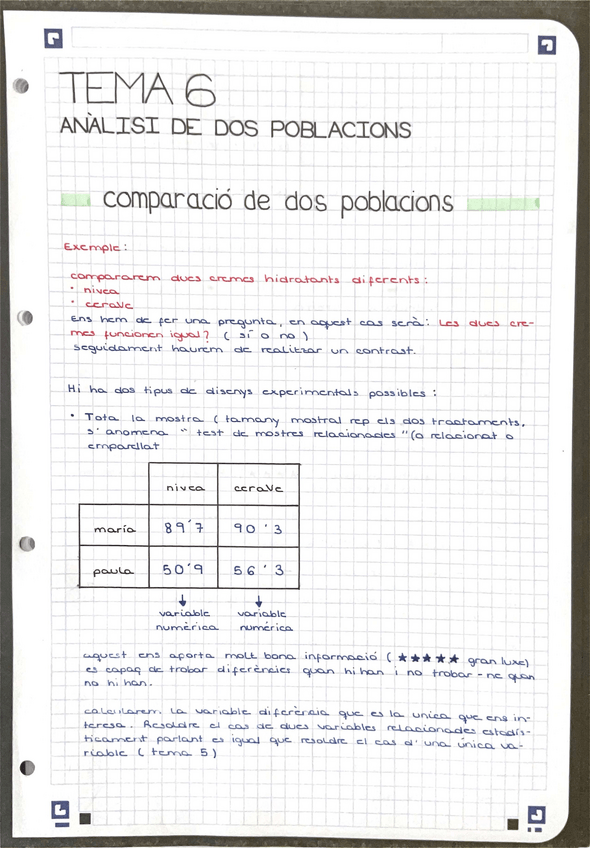 TEMA 6
ANÀLISI DE DOS POBLACIONS
comparació de dos poblacions
Exemple:
compararem dues cremes hidratants diferents:
• nivea
• cerave
Ens hem de fer una pregunta, en aquest cas serà: Les dues cre-
mes funcionen igual? ( sí o no )
seguidament haurem de realitzar un contrast.
Hi ha dos tipus de disenys experimentals possibles :
• Tota la mostra ( tamany mostral rep els dos tractaments,
s'anomena " test de mostres relacionades "(o relacionat o
emparellat
nivea cerave
maría 89'7 90'3
paula 50'9 56'3
↓ ↓
variable variable
numèrica numèrica
aquest ens aporta molt bona informació ( ★★★★★ gran luxe)
es capaç de trobar diferències quan hi han i no trobar-ne quan
no hi han.
calcularem la variable diferència que es la unica que ens in-
teresa. Resoldre el cas de dues variables relacionades estadís-
ticament parlant es igual que resoldre el cas d'una única va-
riable ( tema 5 )